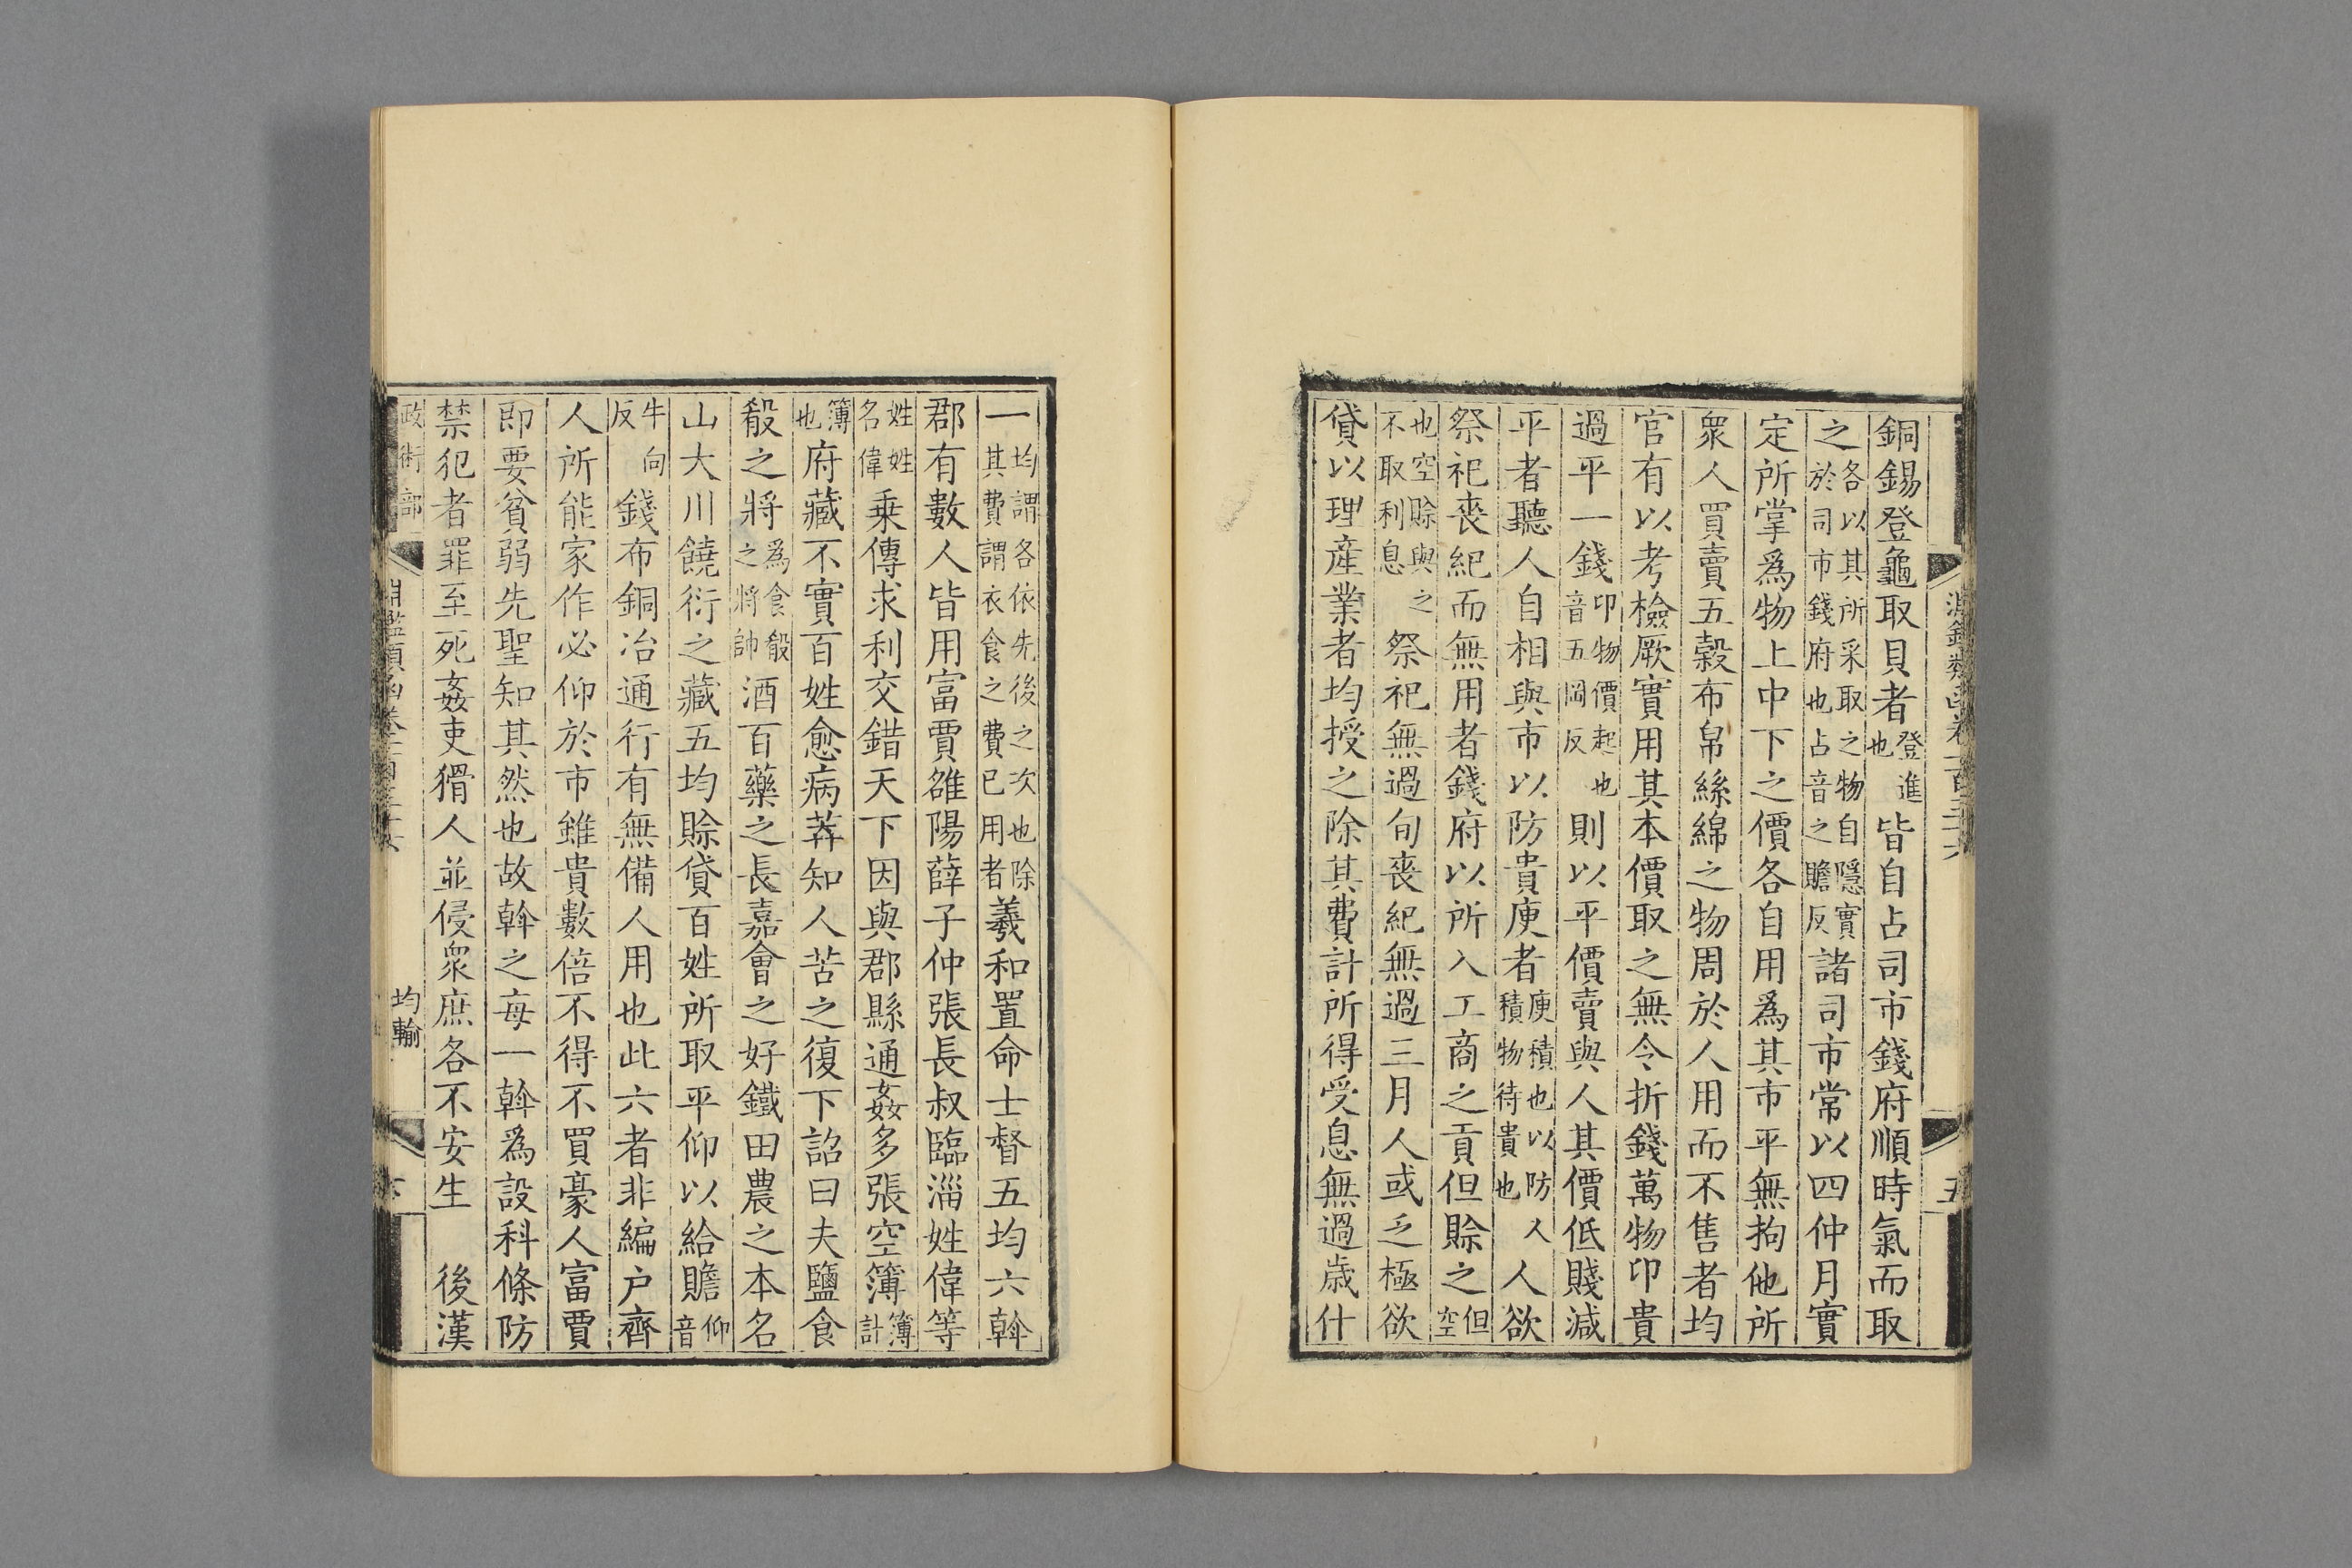 銅錫登龜取貝者登進也皆自占司市錢府順時氣而取
之各以其所采取之物自隱實於司市錢府也占音之贍反諸司市常以四仲月實
定所掌爲物上中下之價各自用爲其市平無拘他所
衆人買賣五穀布帛絲綿之物周於人用而不售者均
官有以考檢厥實用其本價取之無令折錢萬物卬貴
過平一錢卬物價起也音五岡反則以平價賣與人其價低賤減
平者聽人自相與市以防貴庾者庾積也以防人積物待貴也人欲
祭祀喪紀而無用者錢府以所入工商之貢但賒之但空
也空賒與之不取利息祭祀無過旬喪紀無過三月人或乏極欲
貸以理産業者均授之除其費計所得受息無過歲什
一均謂各依先後之次也除其費謂衣食之費已用者羲和置命士督五均六斡
郡有數人皆用富賈雒陽薛子仲張長叔臨淄姓偉等
姓姓名偉乗傳求利交錯天下因與郡縣通姦多張空簿簿計
簿也府藏不實百姓愈病莽知人苦之復下詔曰夫鹽食
殽之將爲食殽之將帥酒百藥之長嘉會之好鐵田農之本名
山大川饒衍之藏五均賒貸百姓所取平仰以給贍仰音
牛向反錢布銅冶通行有無備人用也此六者非編户齊
人所能家作必仰於市雖貴數倍不得不買豪人富賈
即要貧弱先聖知其然也故斡之每一斡爲設科條防
禁犯者罪至死姦吏猾人並侵衆庶各不安生　後漢
政術部
均輸